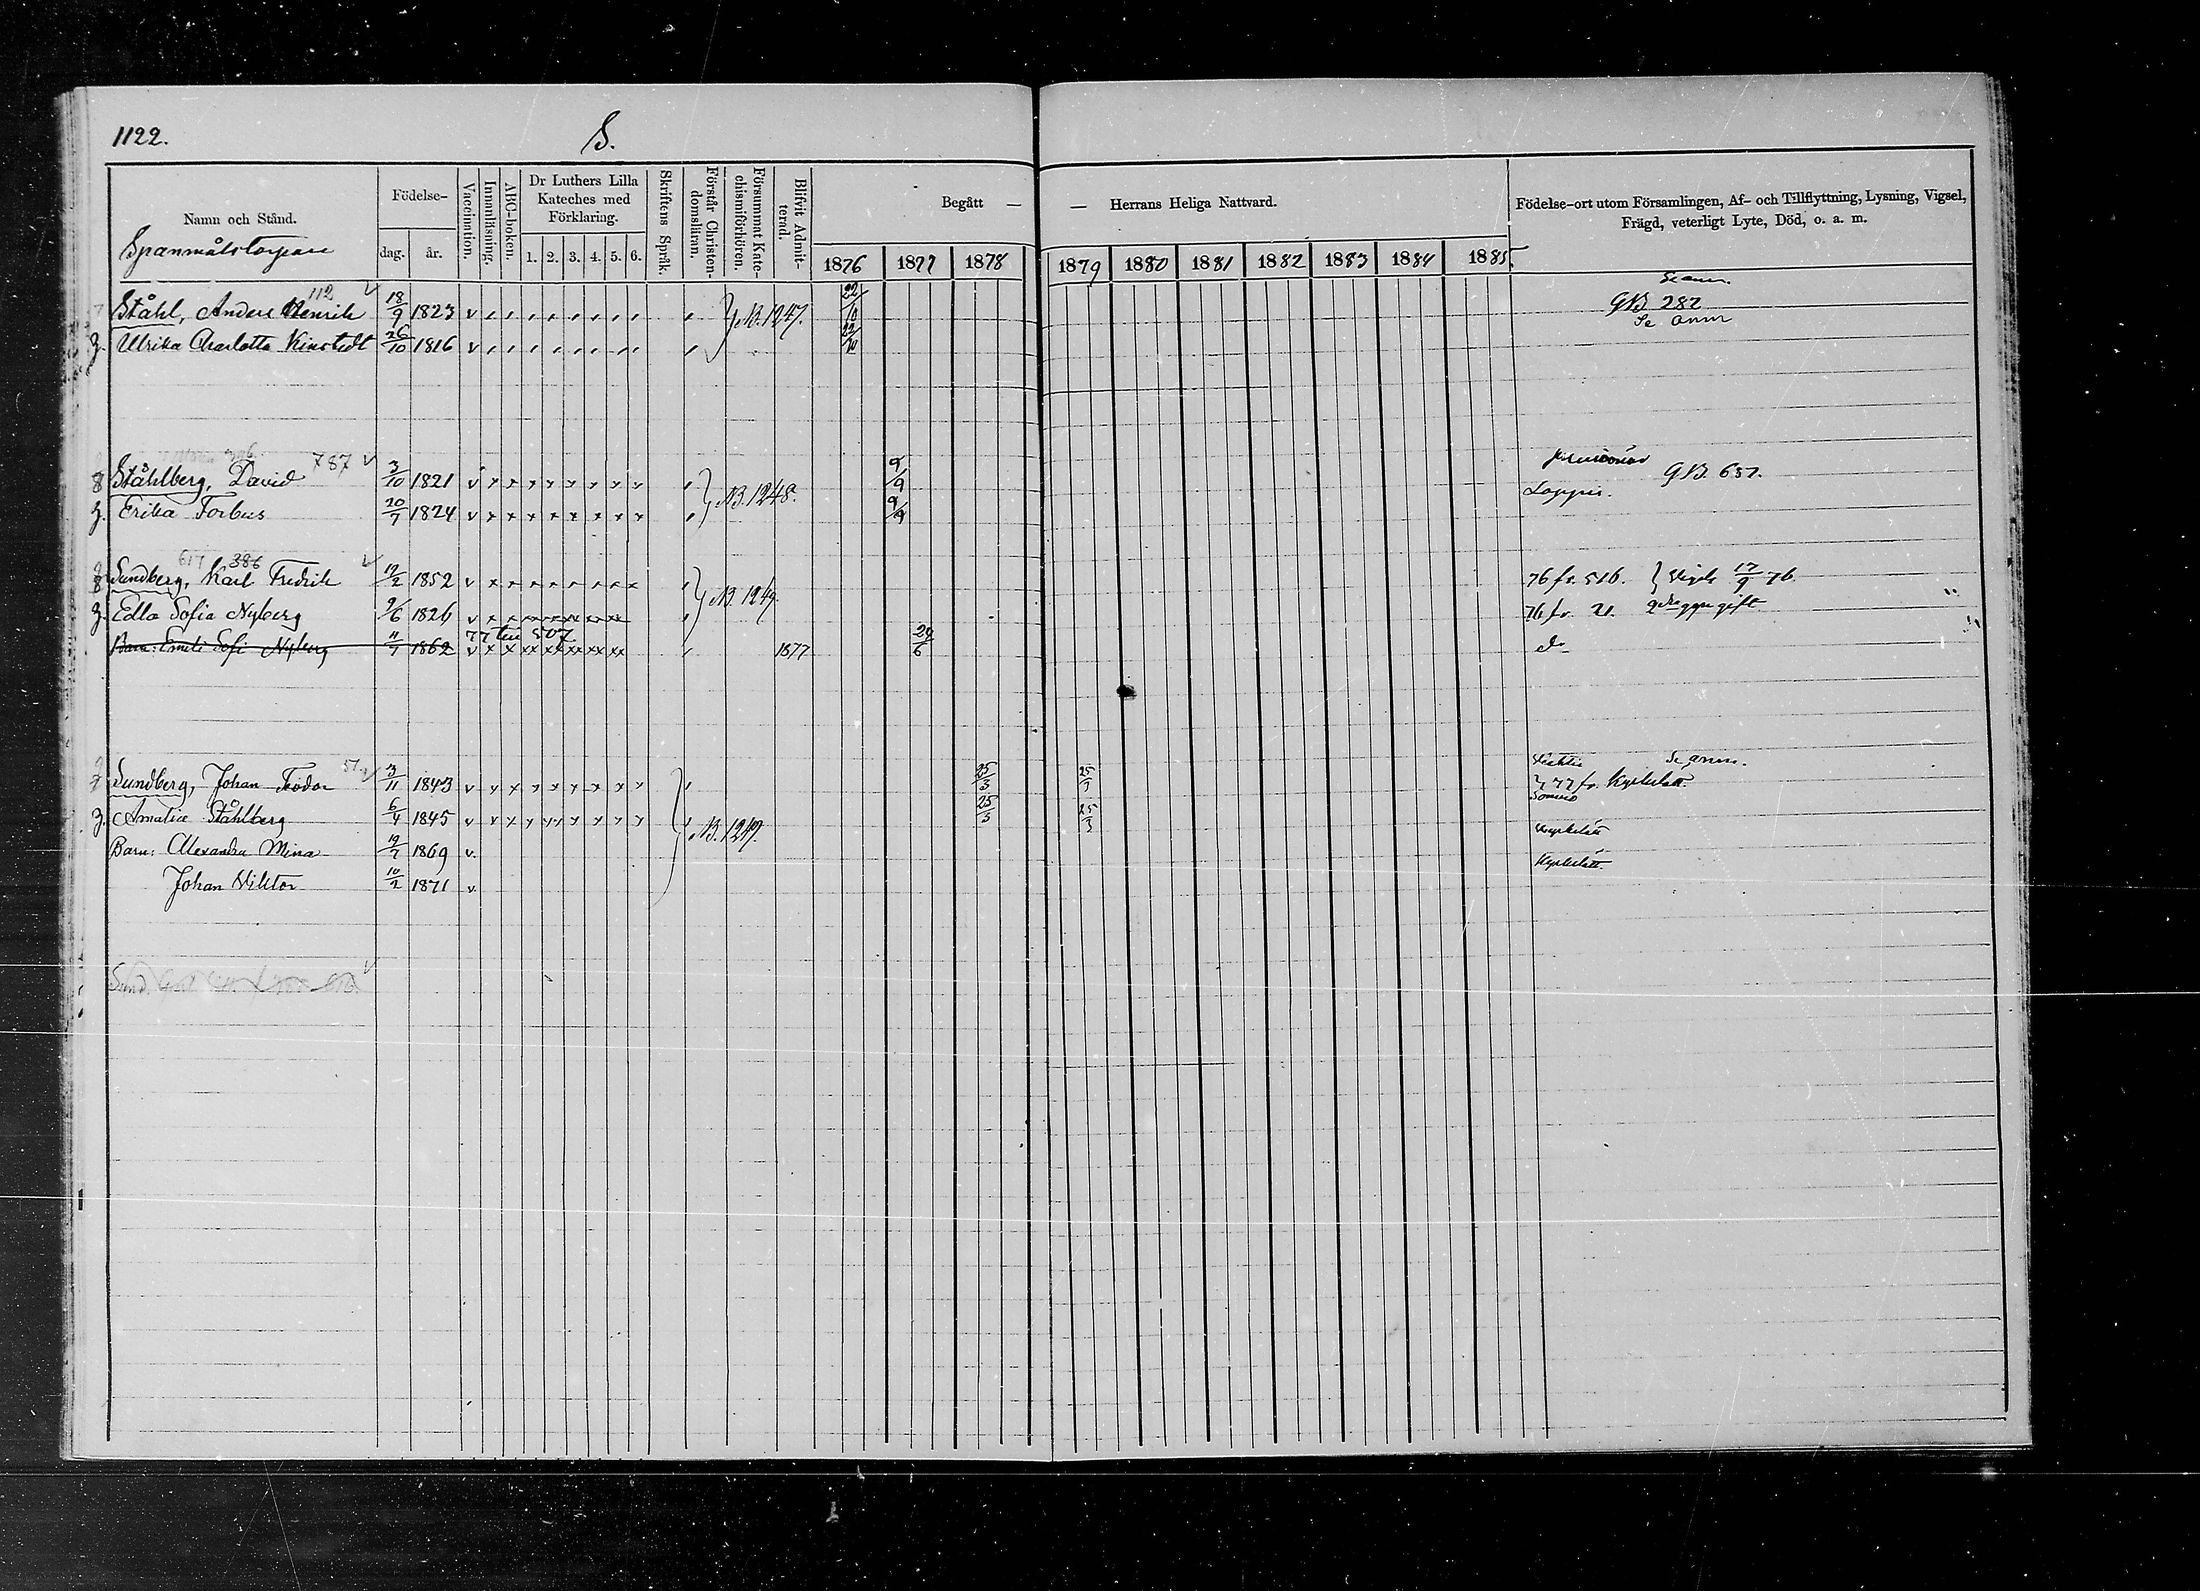 1122.
S.
Namn och Stånd.
Födelse-
dag.
år.
Vaccination.
Innanläsning.
ABC-boken.
Dr Luthers Lilla
Kateches med
Förklaring.
1. 2. 3. 4. 5. 6.
Skriftens Språk.
Förstår Christen-
domsläran.
Försummat Kate-
chismiförhören.
Blifvit Admit-
terad.
Begått —
— Herrans Heliga Nattvard.
1876 1877 1878 1879 1880 1881 1882 1883 1884 1885.
Födelse-ort utom Församlingen, Af- och Tillflyttning, Lysning, Vigsel,
Frägd, veterligt Lyte, Död, o. a. m.
112
Ståhl, Anders Henrik 18/9 1823 v N.B. 1247. 22/10 GB. 282
Se anm
Ulrika Charlotta 26/10 1816 v 22/10
787
Ståhlberg, David 3/10 1821 v x x x x x x x x N.B. 1248. 9/9 GB. 657.
Erika Forbus 20/7 1824 v x x x x x x x x 9/9 Loppis.
617 386
Sundberg, Karl Fredrik 12/2 1852 v N.B. 1249. 76 fr. 516. } Vigde 17/9 76
Edla Sofia Nyberg 9/6 1826 v 76 fr. 21. 2 dra ggn gift
77 till 507
Barn: Emili Sofi Nyberg 11/7 1862 v x x xx xx xx xx xx 1877 29/6 do
Sundberg, Johan Teodor 3/11 1843 v 25/3 25/3 Se anm.
77 fr. Kyrkslätt
Amalia Ståhlberg 6/4 1845 v 25/3 25/3 Somero
N.B. 1249.
Barn: Alexandra Mina 12/7 1869 v. Kyrkslätt
Johan Viktor 10/2 1871 v. Kyrkslätt.